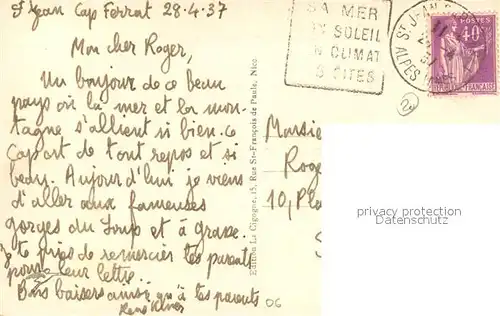 St Jean Cap Ferrat 28-4-37
Mon cher Roger,
Un bonjour de ce beau
pays où la mer et la mon-
tagne s'allient si bien. ce
Cap est de tout repos et si
beau. Aujourd'hui je viens
d'aller aux fameuses
gorges du Loup et à grasse.
Je te prie de remercier tes parents
pour leur lettre.
Bons baisers ainsi qu'à tes parents
Edition La Cigogne, 15, Rue St-François de Paule, Nice.
SA MER
SOLEIL
CLIMAT
SITES
ST JEAN
ALPES
POSTES
40
Monsie
Roge
10, Pla
06
privacy protection
www.oldthing.de